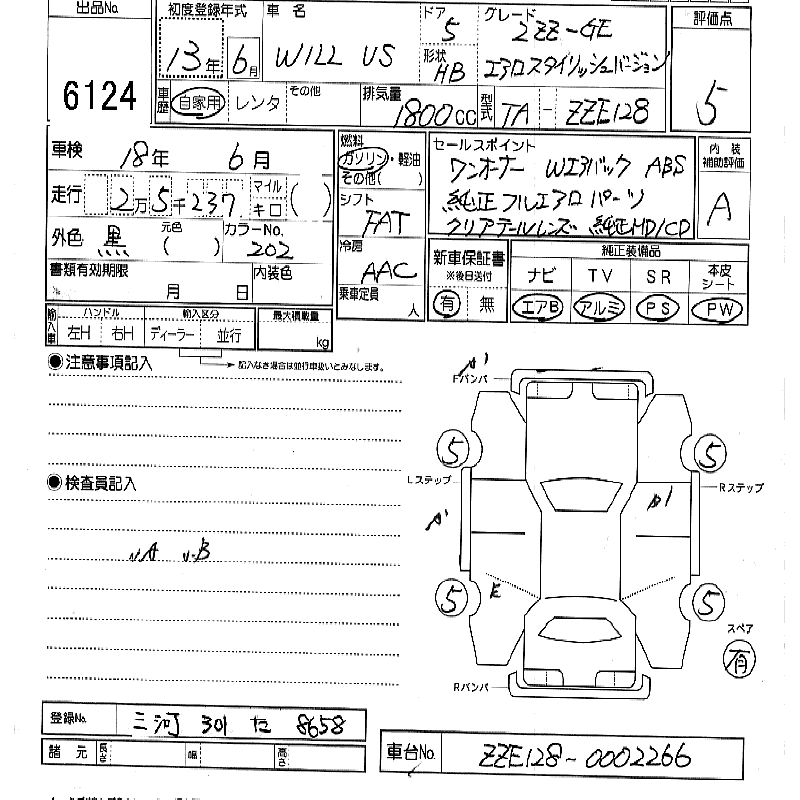 出品No. 6124
初度登録年式 13年 6月
車名 WILL VS
ドア 5
形状 HB
グレード 2ZZ-GE
エアロスタイリッシュバージョン
評価点 5
車歴 自家用 レンタ その他
排気量 1800cc
型式 TA - ZZE128
車検 18年 6月
走行 2万5千237 マイル キロ ( )
外色 黒 元色 ( ) カラーNo. 202
書類有効期限 月 日 内装色
燃料 ガソリン・軽油 その他( )
シフト FAT
冷房 AAC
乗車定員 人
セールスポイント
ワンオーナー Wエアバック ABS
純正フルエアロパーツ
クリアテールレンズ 純正MD/CD
内装補助評価 A
新車保証書 ※後日送付 有 無
純正装備品
ナビ TV SR 本皮シート
エアB アルミ PS PW
輸入車 ハンドル 左H 右H 輸入区分 ディーラー 並行
最大積載量 kg
記入なき場合は並行車扱いとみなします。
●注意事項記入
●検査員記入
A B
A' Fバンパ
5 5
Lステップ Rステップ
A' A1
E
5 5
スペア 有
Rバンパ
登録No. 三河 301 た 8658
諸元 長さ 幅 高さ
車台No. ZZE128-0002266